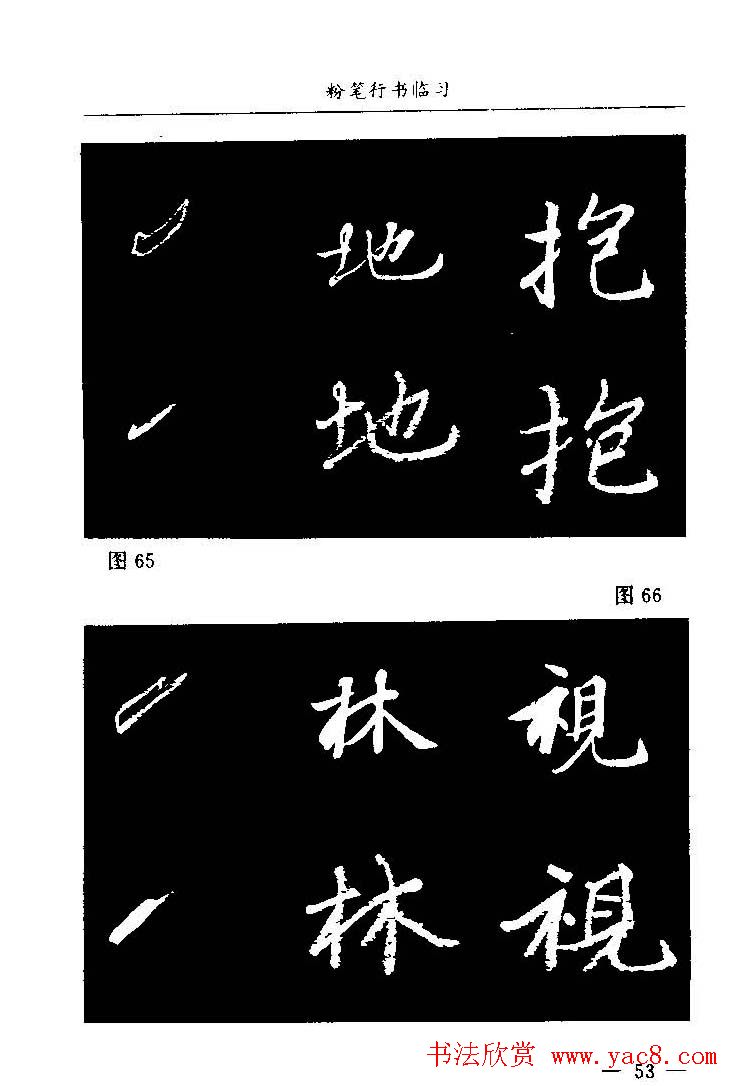 粉笔行书临习
地 抱
地 抱
图 65
图 66
林 視
林 視
书法欣赏 www.yac8.com
— 53 —